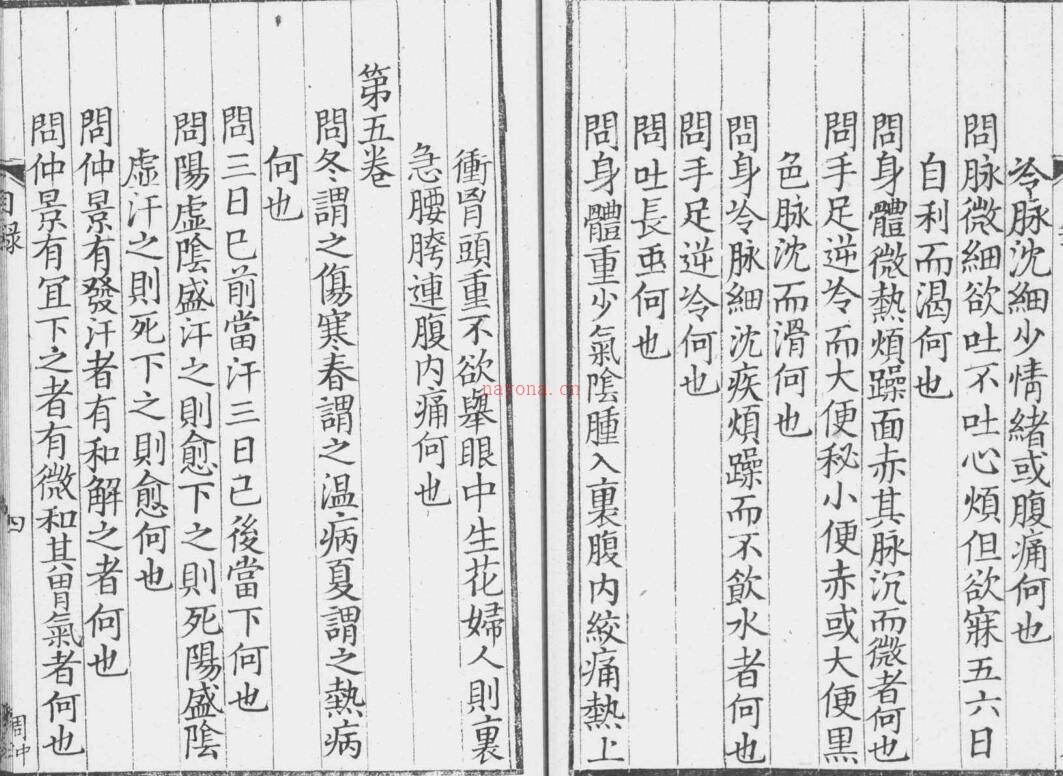 冷脉沈細少情緒或腹痛何也
問脉微細欲吐不吐心煩但欲寐五六日
自利而渴何也
問身體微熱煩躁面赤其脉沉而微者何也
問手足逆冷而大便秘小便赤或大便黒
色脉沈而滑何也
問身冷脉細沈疾煩躁而不飲水者何也
問手足逆冷何也
問吐長𧈢何也
問身體重少氣陰腫入裏腹内絞痛熱上
衝胷頭重不欲舉眼中生花婦人則裏
急腰胯連腹内痛何也
第五卷
問冬謂之傷寒春謂之温病夏謂之熱病
何也
問三日已前當汗三日已後當下何也
問陽虚陰盛汗之則愈下之則死陽盛陰
虚汗之則死下之則愈何也
問仲景有發汗者有和解之者何也
問仲景有宜下之者有微和其胃氣者何也
目録
四
周中
nayona.cn